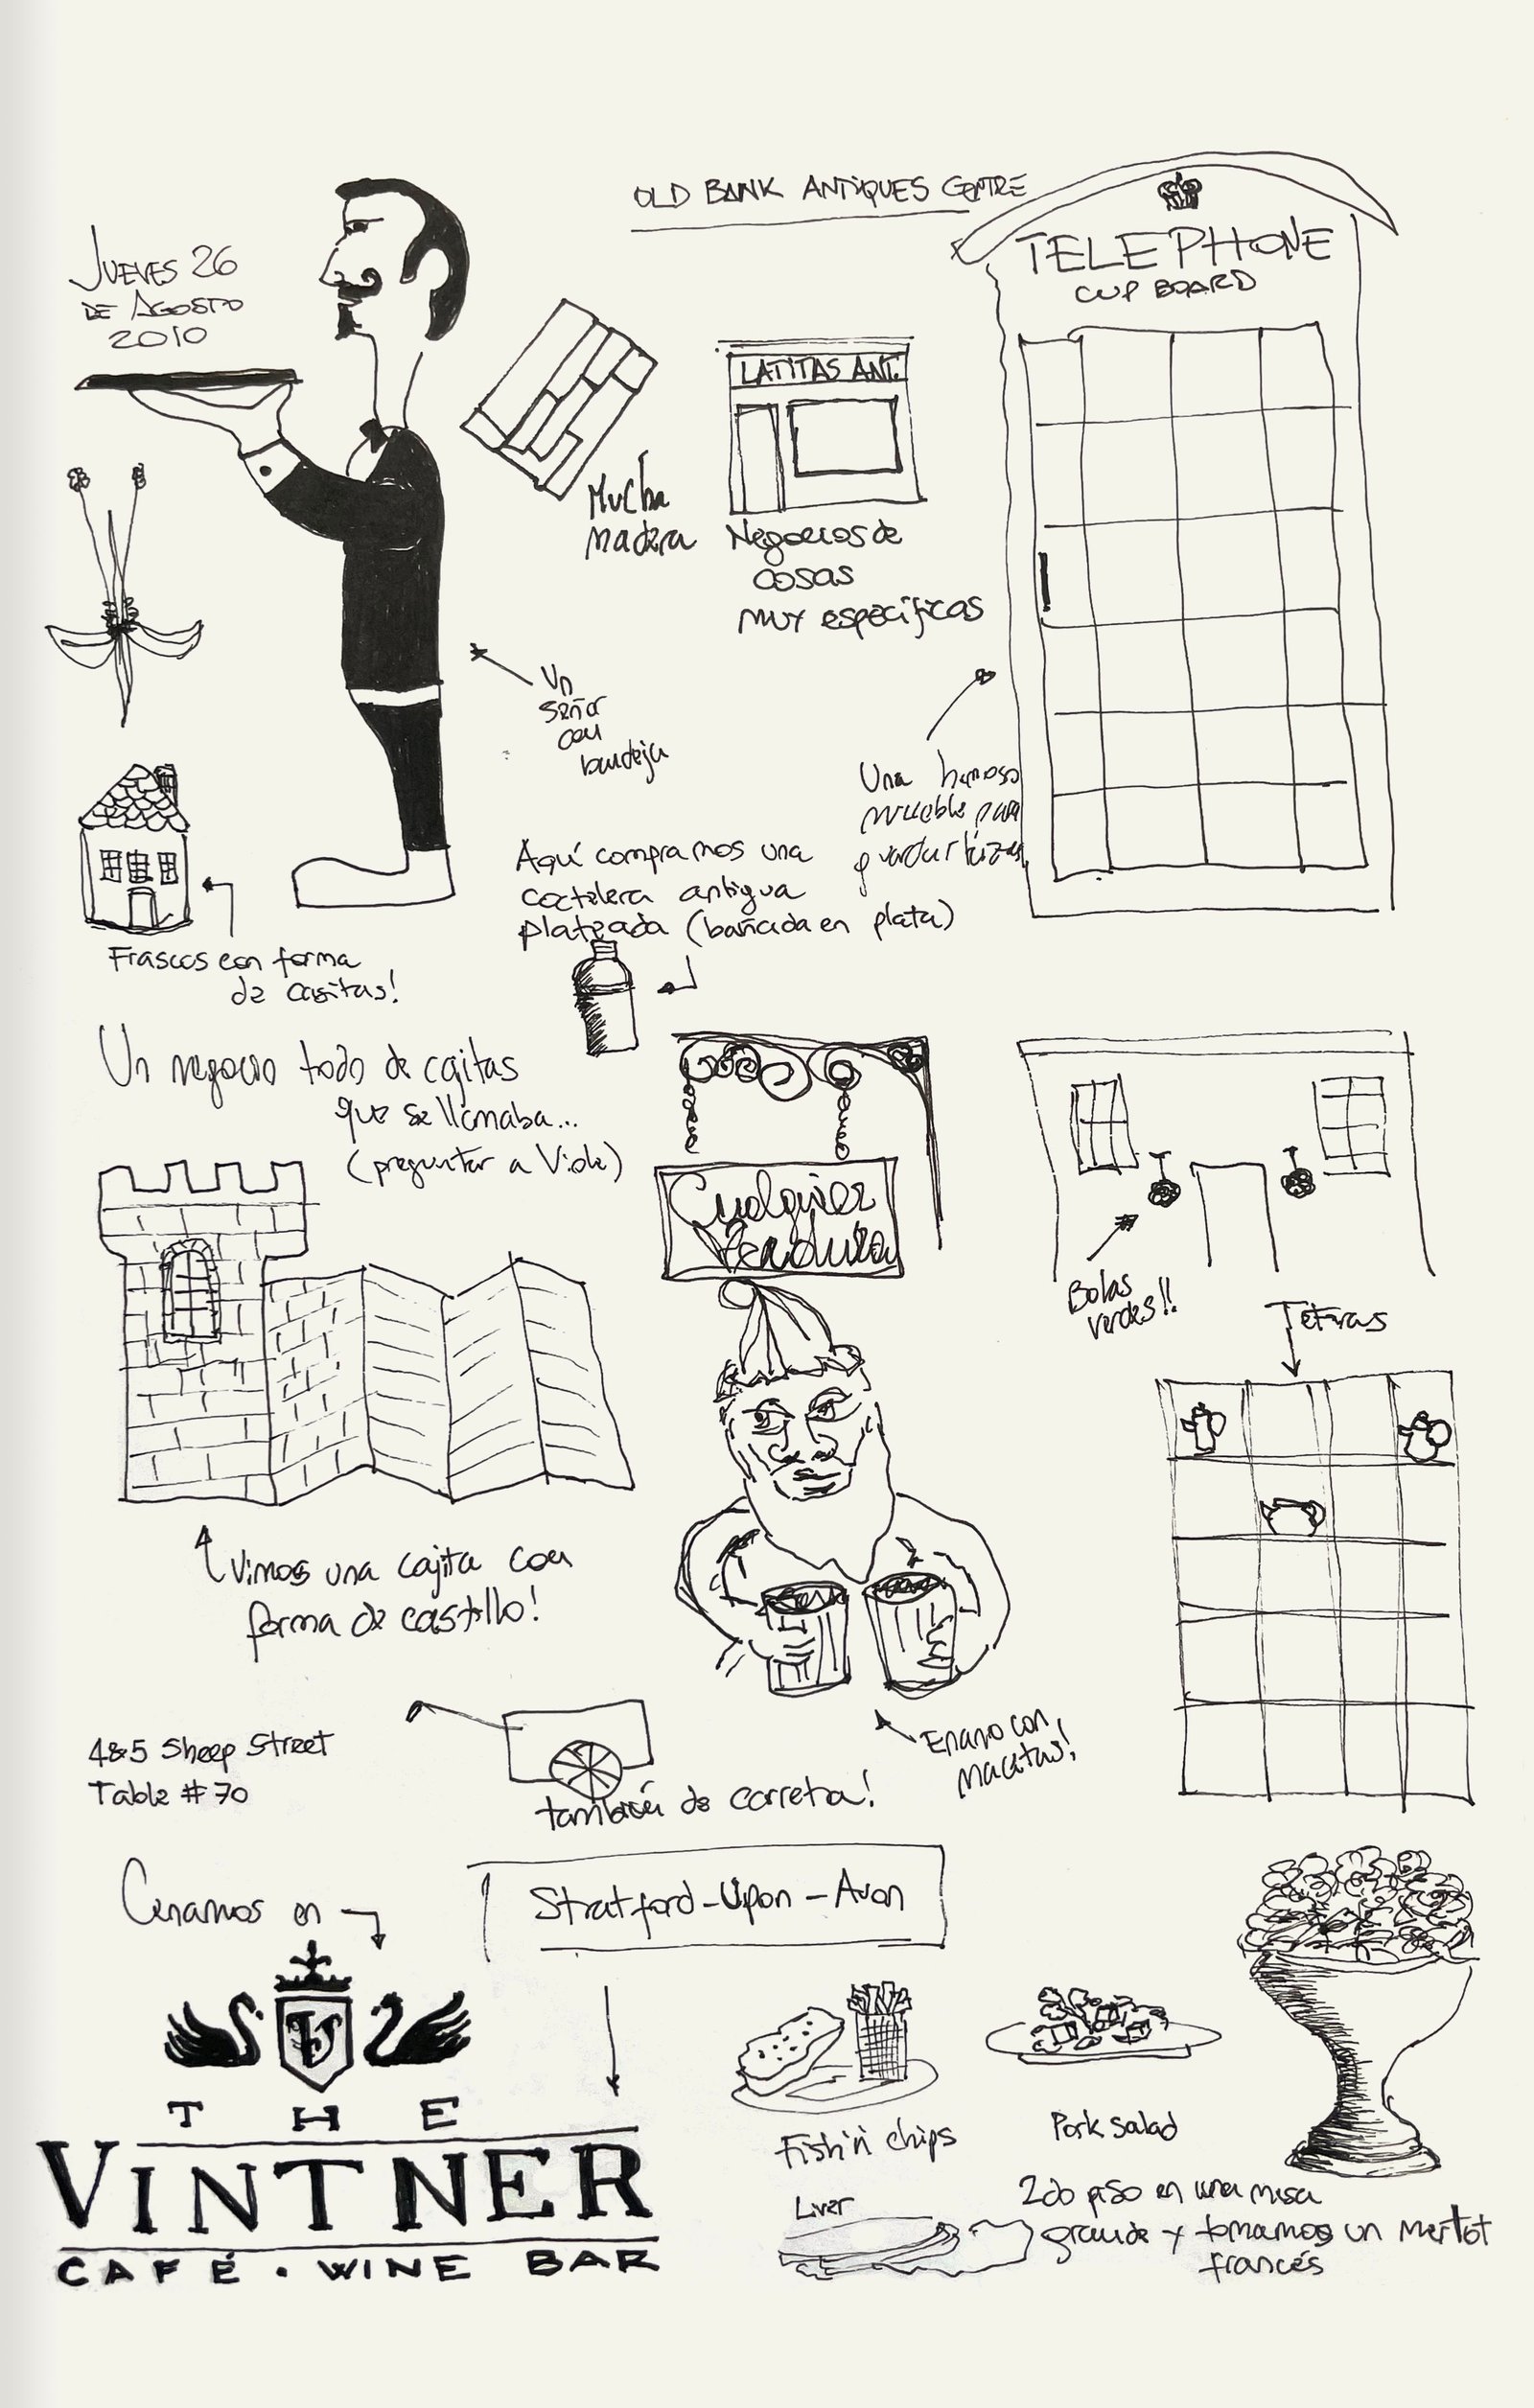 OLD BANK ANTIQUES CENTRE
JUEVES 26
DE AGOSTO
2010
TELEPHONE
CUPBOARD
LATITAS ANT.
Mucha
madera
Negocios de
cosas
muy específicas
Un
señor
con
bandeja
Una hermoso
mueble para
guardar tazas
Aquí compramos una
coctelera antigua
plateada (bañada en plata)
Frascos con forma
de casitas!
Un negocio todo de cajitas
que se llamaba...
(preguntar a Viole)
Cualquier
Verdura
Bolas
verdes!!
Teteras
Vimos una cajita con
forma de castillo!
Enano con
macetas!
4&5 Sheep Street
Table #70
también de carreta!
Cenamos en
Stratford-Upon-Avon
V
THE
VINTNER
CAFÉ · WINE BAR
Fish'n chips
Pork salad
Liver
2do piso en una mesa
grande y tomamos un Merlot
francés